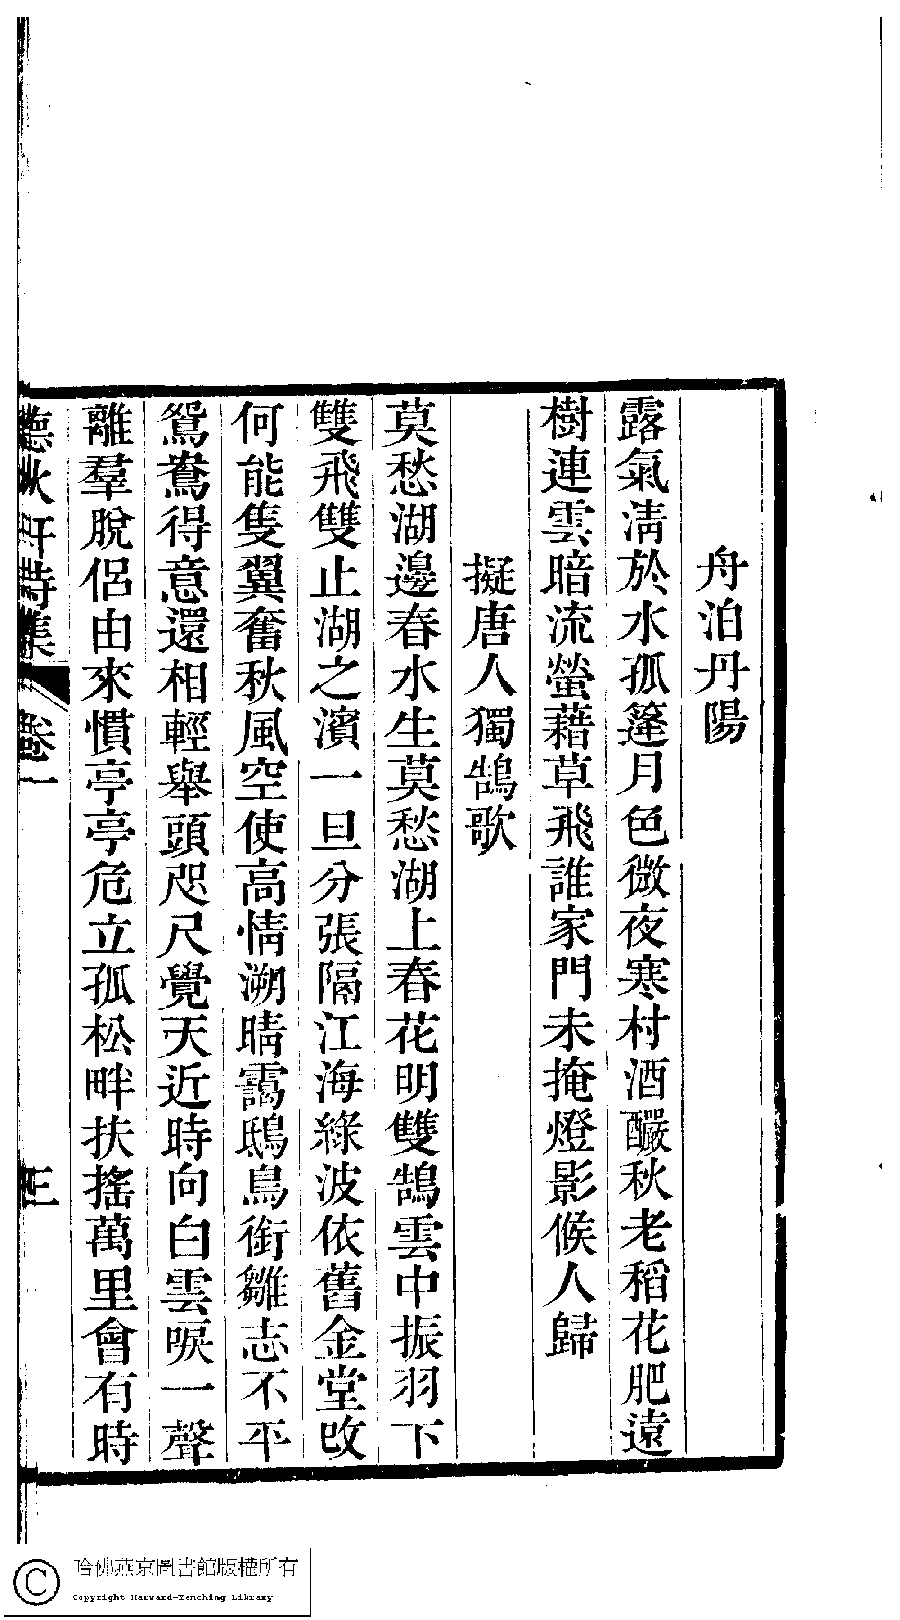 舟泊丹陽
露氣清於水孤篷月色微夜寒村酒釅秋老稻花肥遠
樹連雲暗流螢藉草飛誰家門未掩燈影候人歸
擬唐人獨鵠歌
莫愁湖邊春水生莫愁湖上春花明雙鵠雲中振羽下
雙飛雙止湖之濱一旦分張隔江海綠波依舊金堂改
何能隻翼奮秋風空使高情溯晴靄鴟鳥銜雛志不平
鴛鴦得意還相輕舉頭咫尺覺天近時向白雲唳一聲
離羣脫侶由來慣亭亭危立孤松畔扶搖萬里會有時
聽秋軒詩集 卷一 三
哈佛燕京圖書館版權所有
Copyright Harvard-Yenching Library